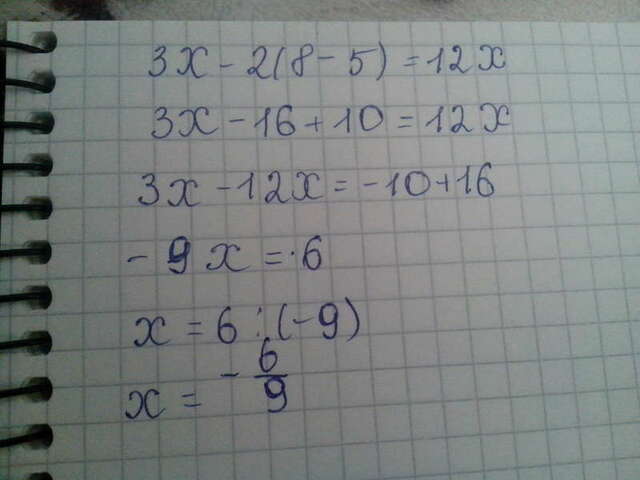 3x - 2(8 - 5) = 12x
3x - 16 + 10 = 12x
3x - 12x = -10 + 16
- 9x = 6
x = 6 : (-9)
x = - 6/9